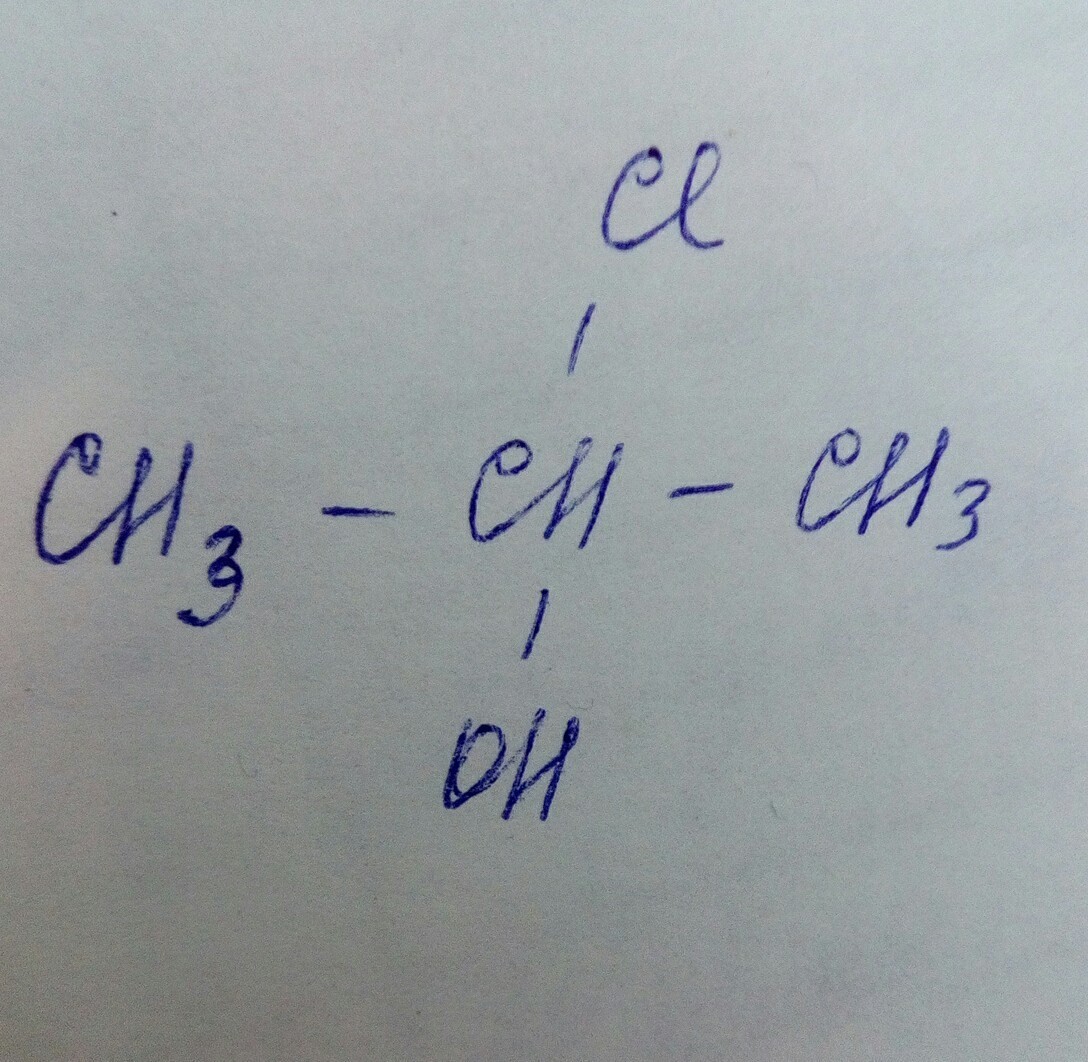 Cl
CH3 - CH - CH3
OH